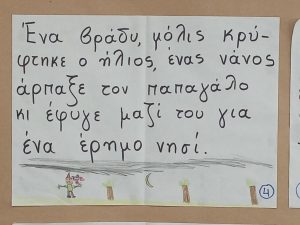 Ένα βράδυ, μόλις κρύ-
φτηκε ο ήλιος, ένας νάνος
άρπαξε τον παπαγάλο
κι έφυγε μαζί του για
ένα έρημο νησί.
4